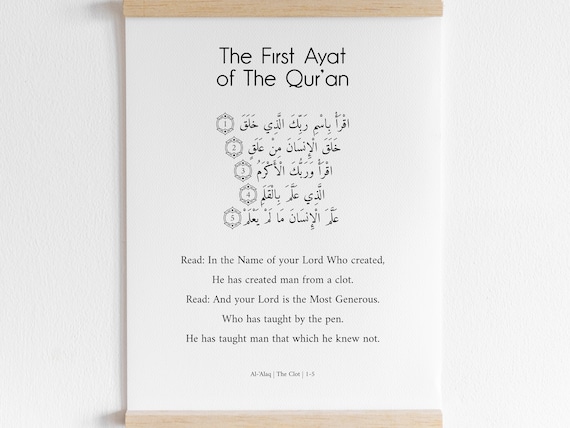 The First Ayat
of The Qur'an
اقْرَأْ بِاسْمِ رَبِّكَ الَّذِي خَلَقَ 1
خَلَقَ الْإِنسَانَ مِنْ عَلَقٍ 2
اقْرَأْ وَرَبُّكَ الْأَكْرَمُ 3
الَّذِي عَلَّمَ بِالْقَلَمِ 4
عَلَّمَ الْإِنسَانَ مَا لَمْ يَعْلَمْ 5
Read: In the Name of your Lord Who created,
He has created man from a clot.
Read: And your Lord is the Most Generous.
Who has taught by the pen.
He has taught man that which he knew not.
Al-'Alaq | The Clot | 1-5